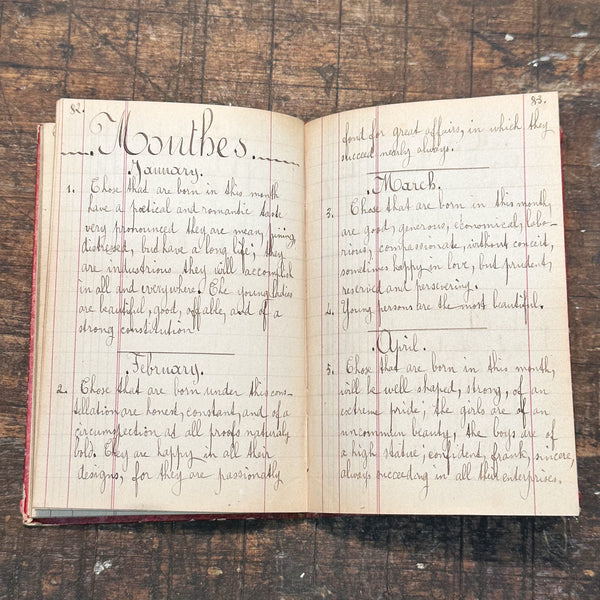 82.
Monthes.
January.
1. Those that are born in this month
have a poetical and romantic taste
very pronounced they are mean,
distressed, but have a long life; they
are industrious they will accomplish
in all and everywhere. The young ladies
are beautiful, good, affable, and of a
strong constitution.
February.
2. Those that are born under this cons-
tellation are honest, constant, and of a
circumspection at all proofs naturaly
bold. They are happy in all their
designs, for they are passionatly
83.
fond for great affairs, in which they
succeed nearly always.
March.
3. Those that are born in this month,
are good, generous, economical, labo-
rious, compassionate, without conceit,
sometimes happy in love, but prudent,
reserved and persevering.
4. Young persons are the most beautiful.
April.
5. Those that are born in this month,
will be well shaped, strong, of an
extreme pride; the girls are of an
uncommun beauty, the boys are of
a high statue, confident, frank, sincere,
always succeeding in all their enterprises.